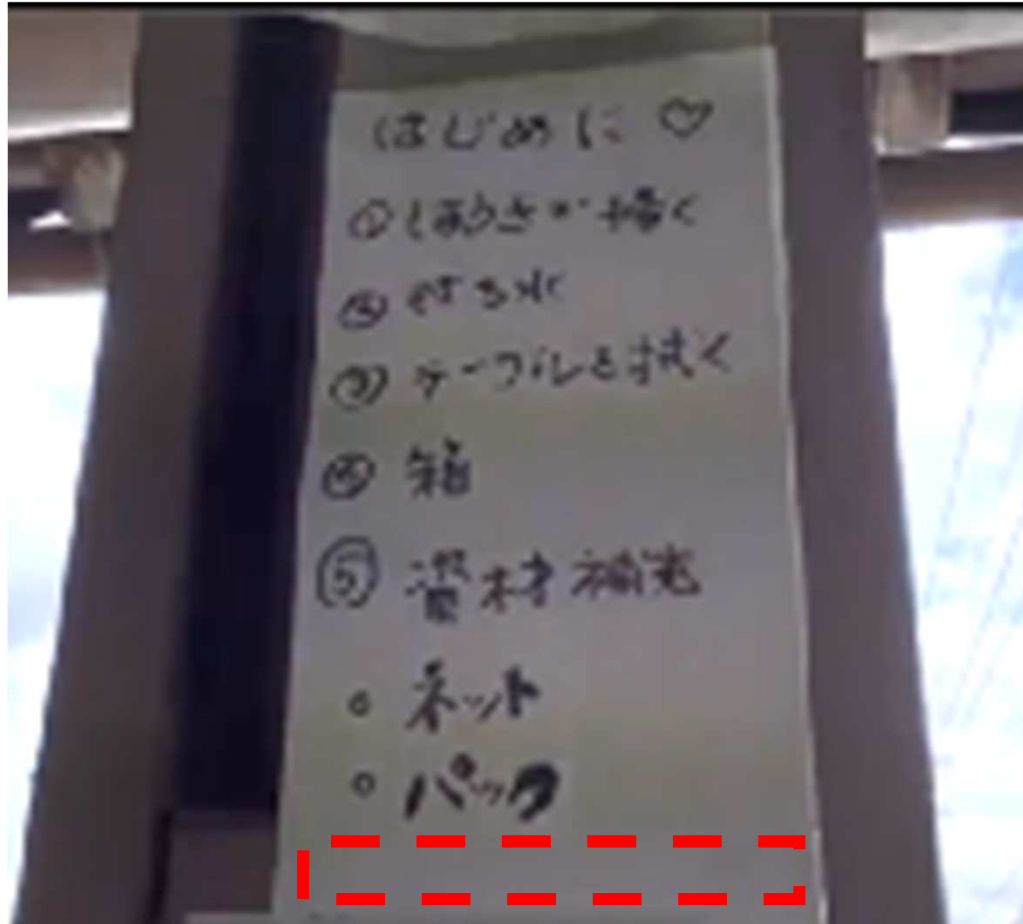 はじめに♡
①ほうきで掃く
②
③テーブルを拭く
④ 箱
⑤ 資材補充
○ ネット
○ パック